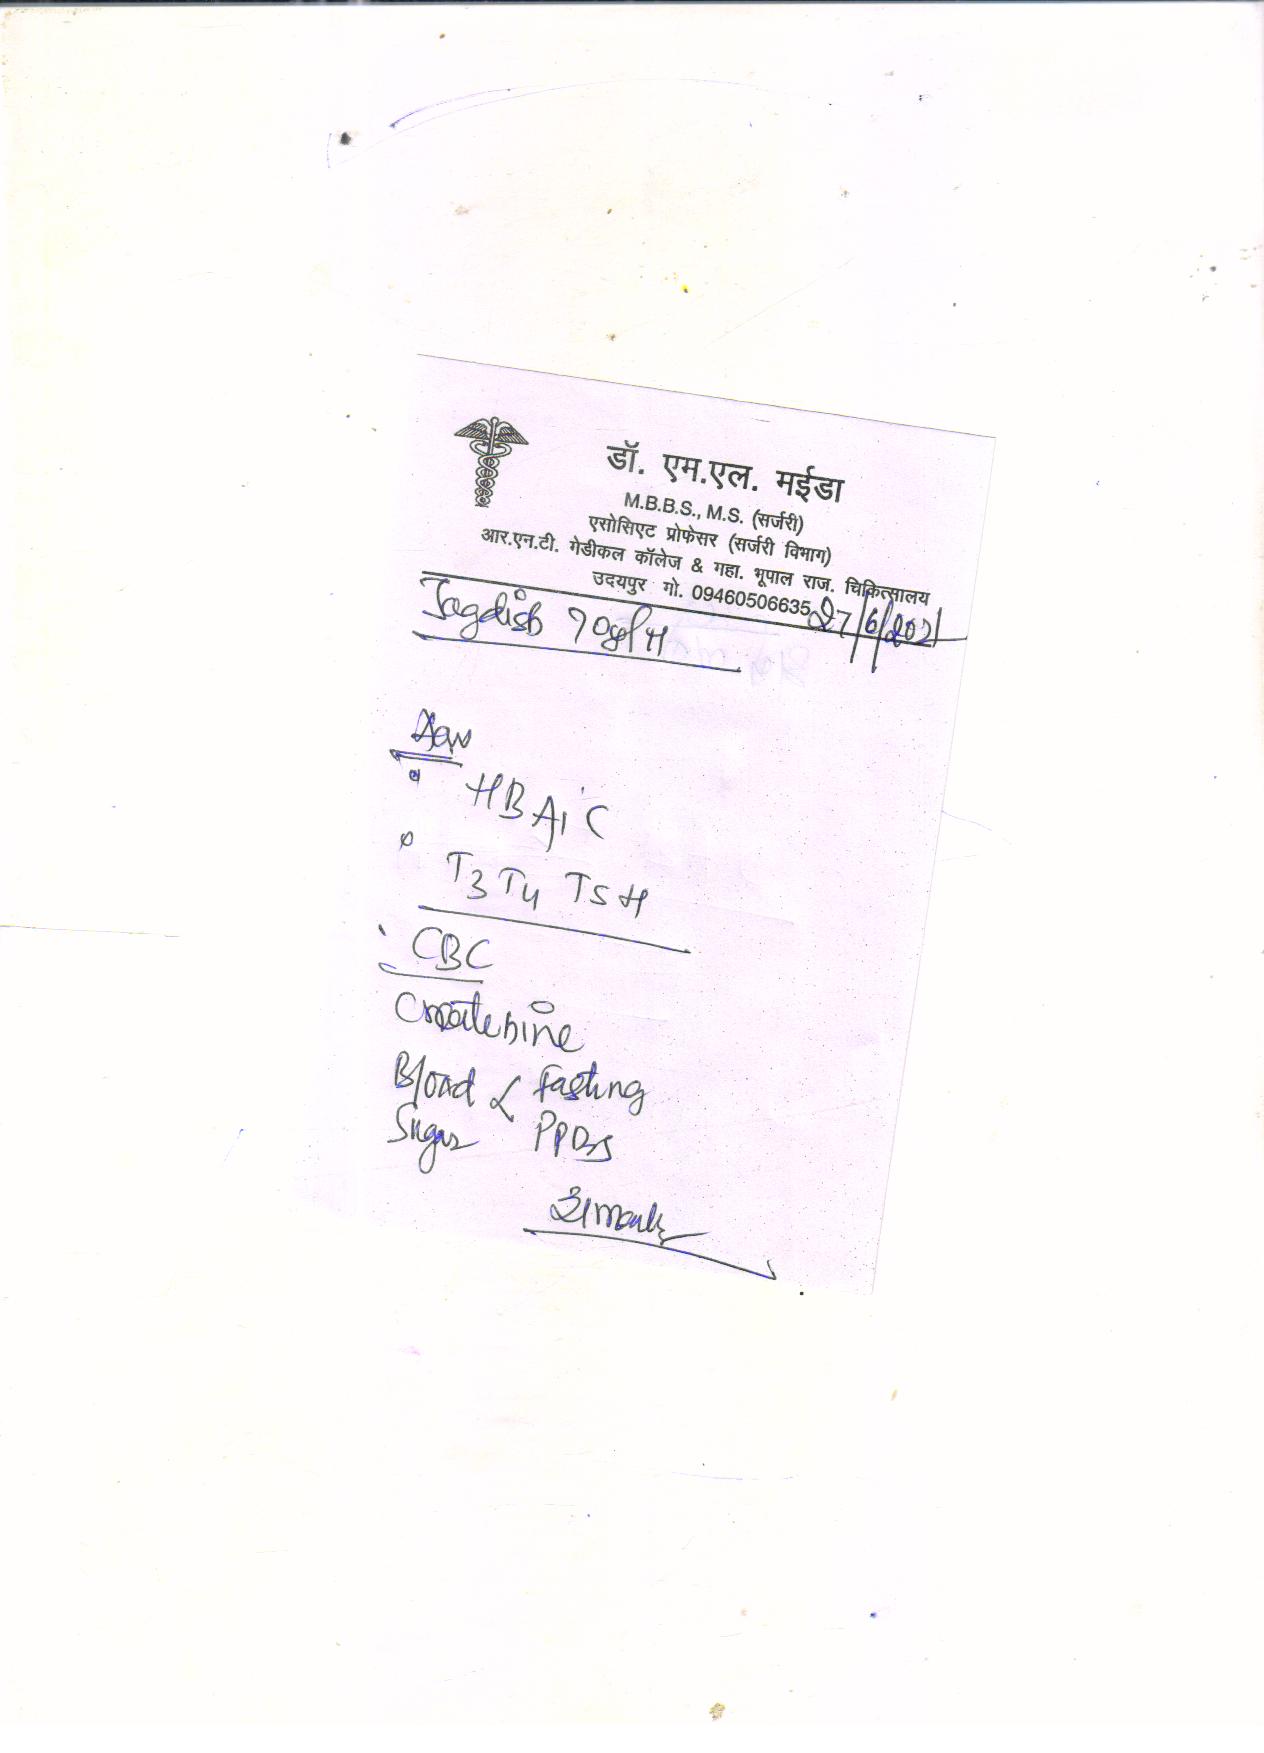 डॉ. एम.एल. मईडा
M.B.B.S., M.S. (सर्जरी)
एसोसिएट प्रोफेसर (सर्जरी विभाग)
आर.एन.टी. मेडीकल कॉलेज & महा. भूपाल राज. चिकित्सालय
उदयपुर मो. 09460506635
27/6/2021
Jagdish 70y/M
HBA1C
T3 T4 TSH
CBC
Createnine
Blood < Fasting
Sugar PPBS